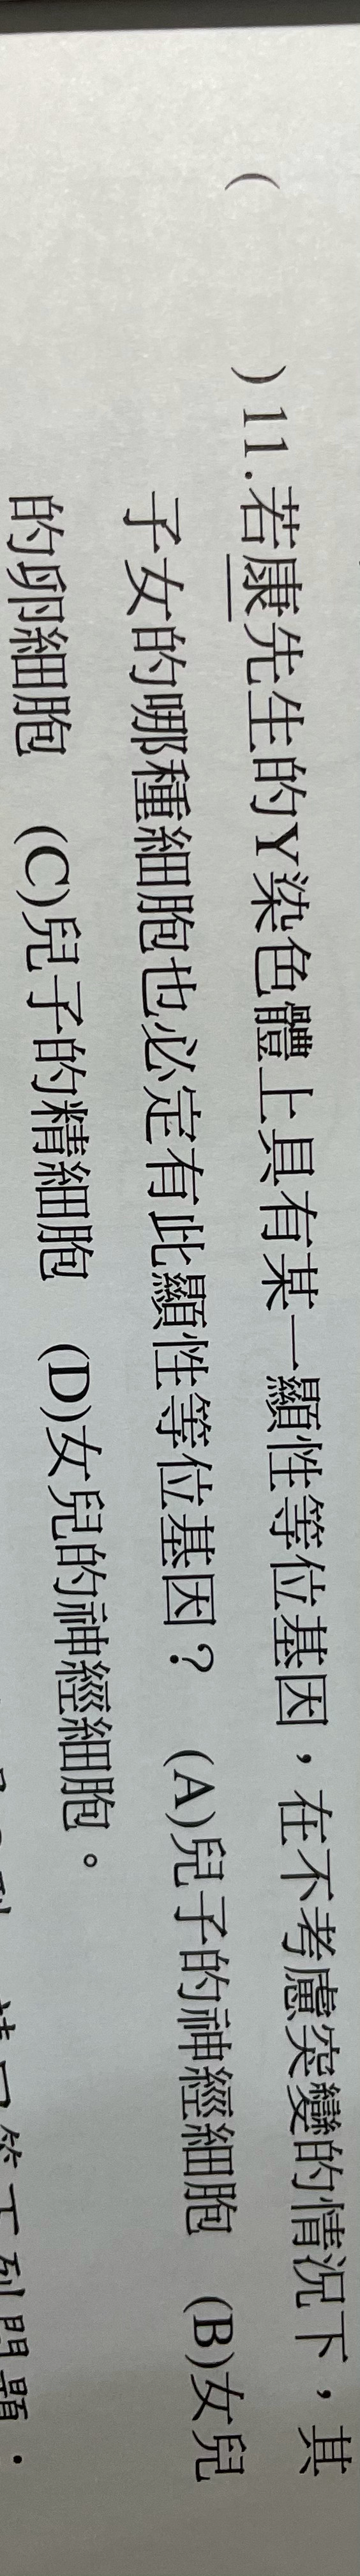 (　　)11.若康先生的Y染色體上具有某一顯性等位基因，在不考慮突變的情況下，其
子女的哪種細胞也必定有此顯性等位基因？　(A)兒子的神經細胞　(B)女兒
的卵細胞　(C)兒子的精細胞　(D)女兒的神經細胞。
下列問題：